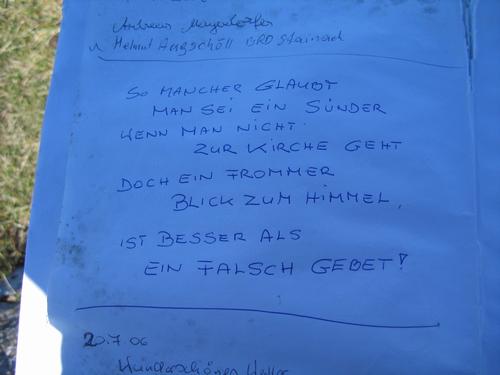 Andreas
u Helmut Angschöll BRD
SO MANCHER GLAUBT
MAN SEI EIN SÜNDER
WENN MAN NICHT
ZUR KIRCHE GEHT
DOCH EIN FROMMER
BLICK ZUM HIMMEL,
IST BESSER ALS
EIN FALSCH GEBET!
20.7 06
Wunderschönes